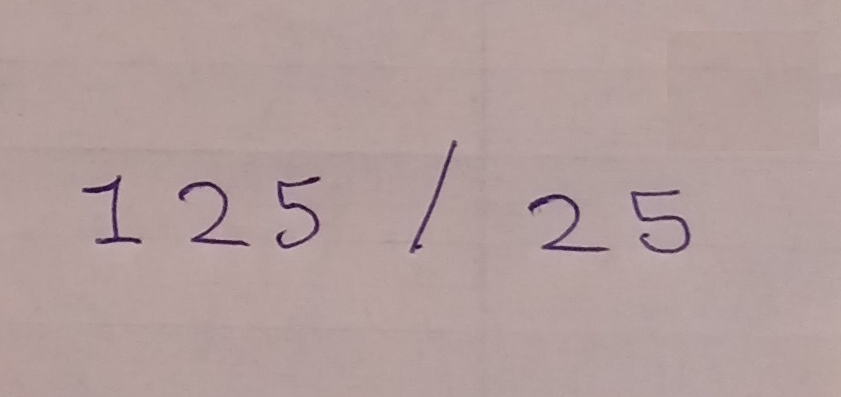 125 / 25